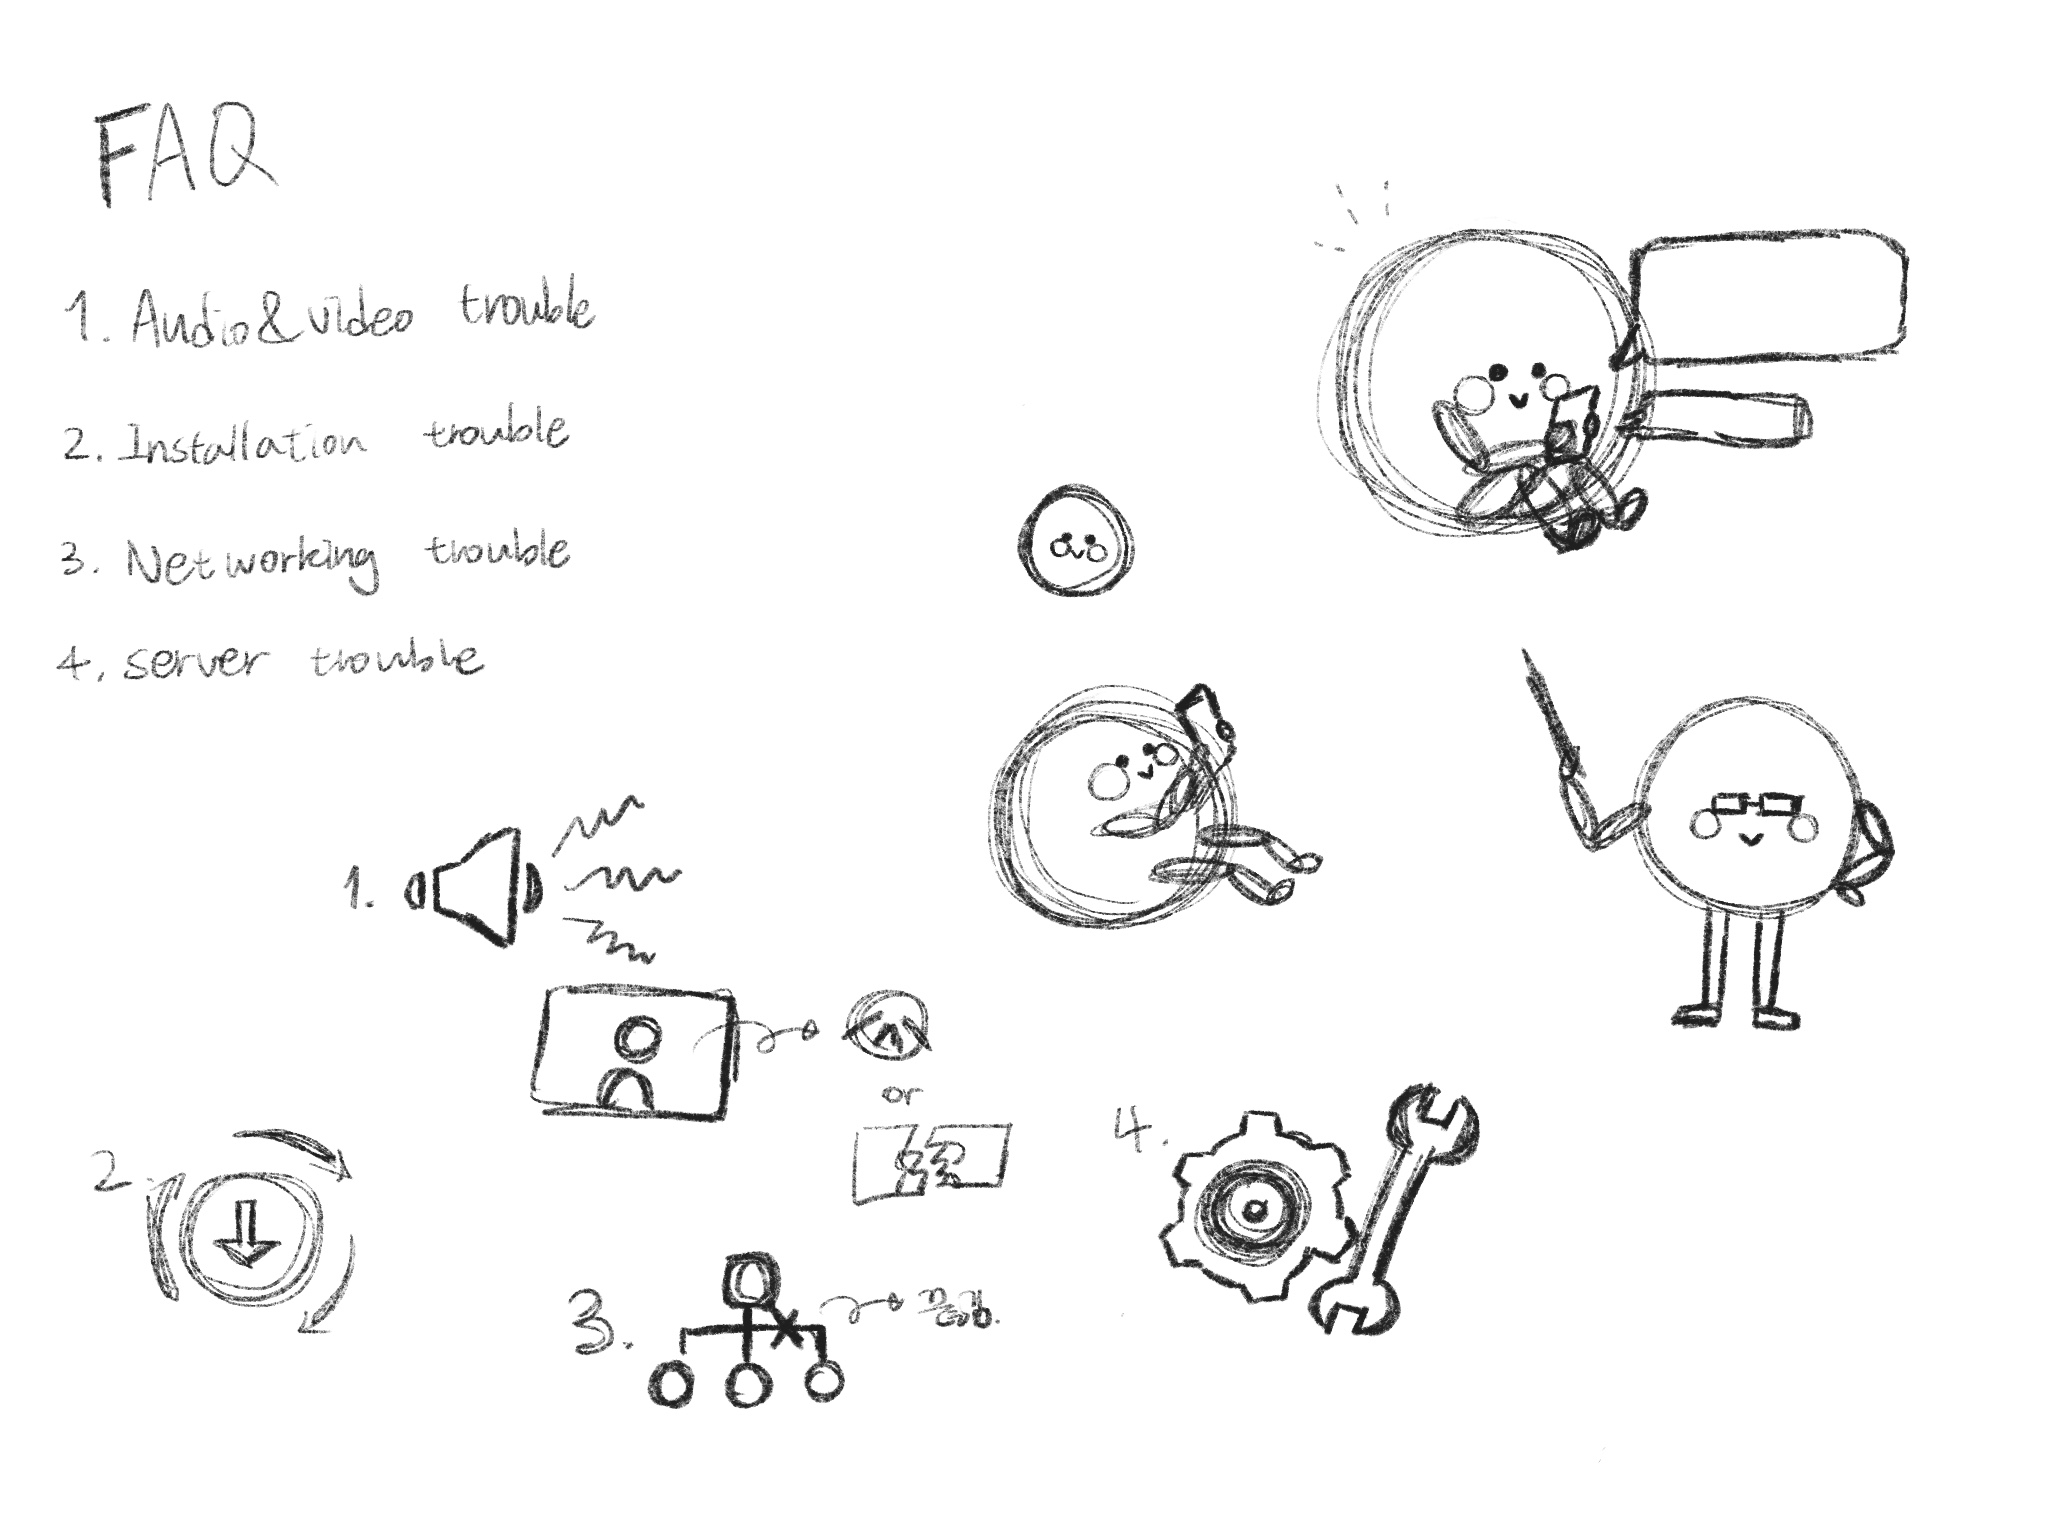 FAQ
1. Audio&video trouble
2. Installation trouble
3. Networking trouble
4. server trouble
1.
or
2.
4.
3.